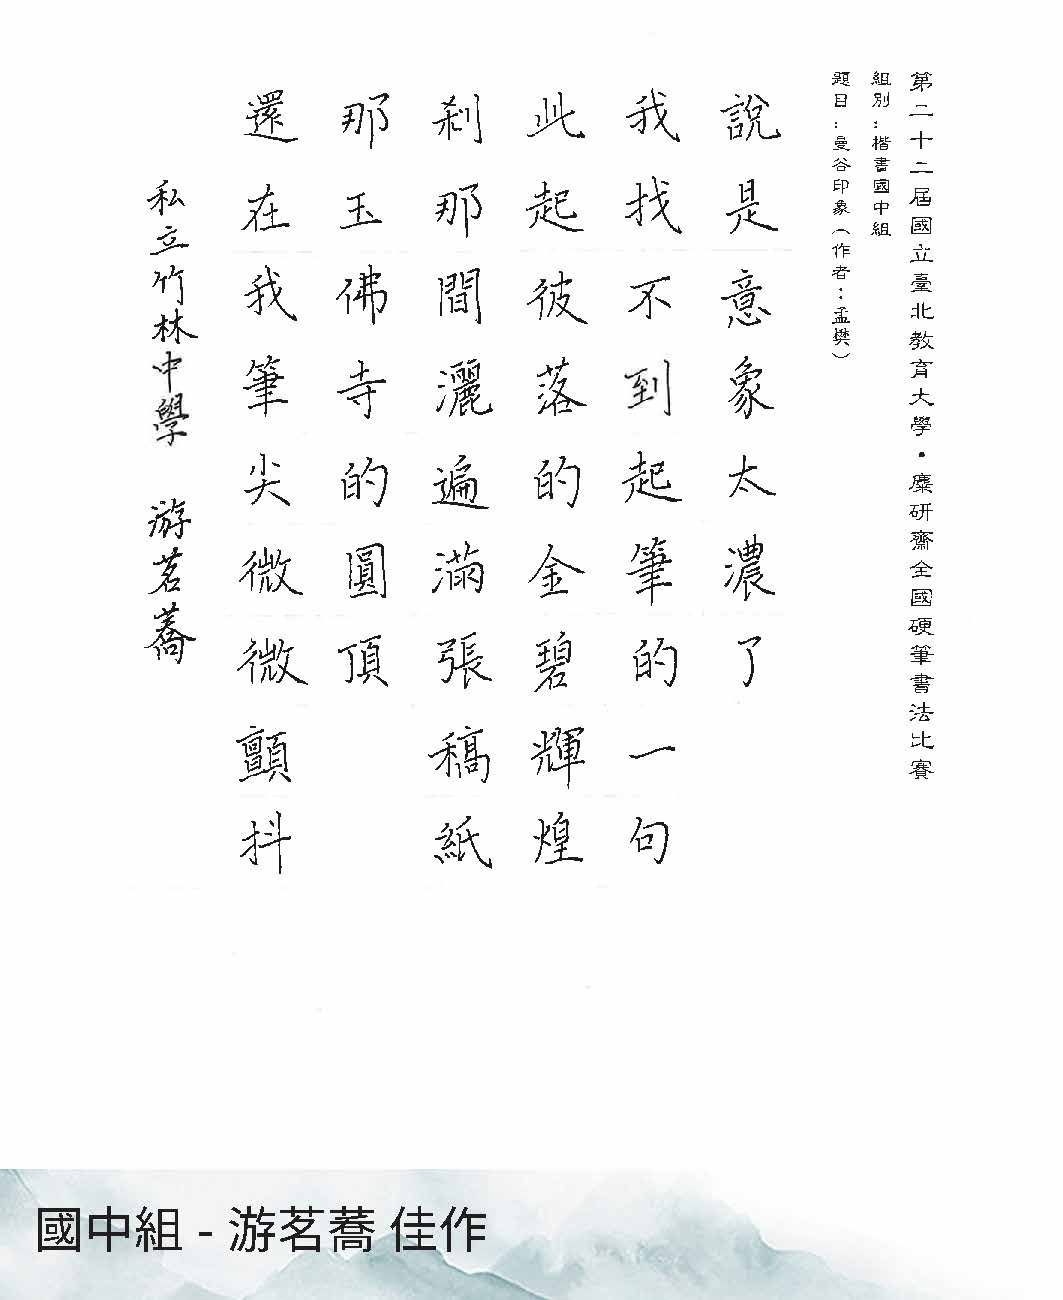 第二十二屆國立臺北教育大學・麋研齋全國硬筆書法比賽
組別：楷書國中組
題目：曼谷印象（作者：孟樊）
說是意象太濃了
我找不到起筆的一句
此起彼落的金碧輝煌
剎那間灑遍滿張稿紙
那玉佛寺的圓頂
還在我筆尖微微顫抖
私立竹林中學 游茗蕎
國中組 - 游茗蕎 佳作